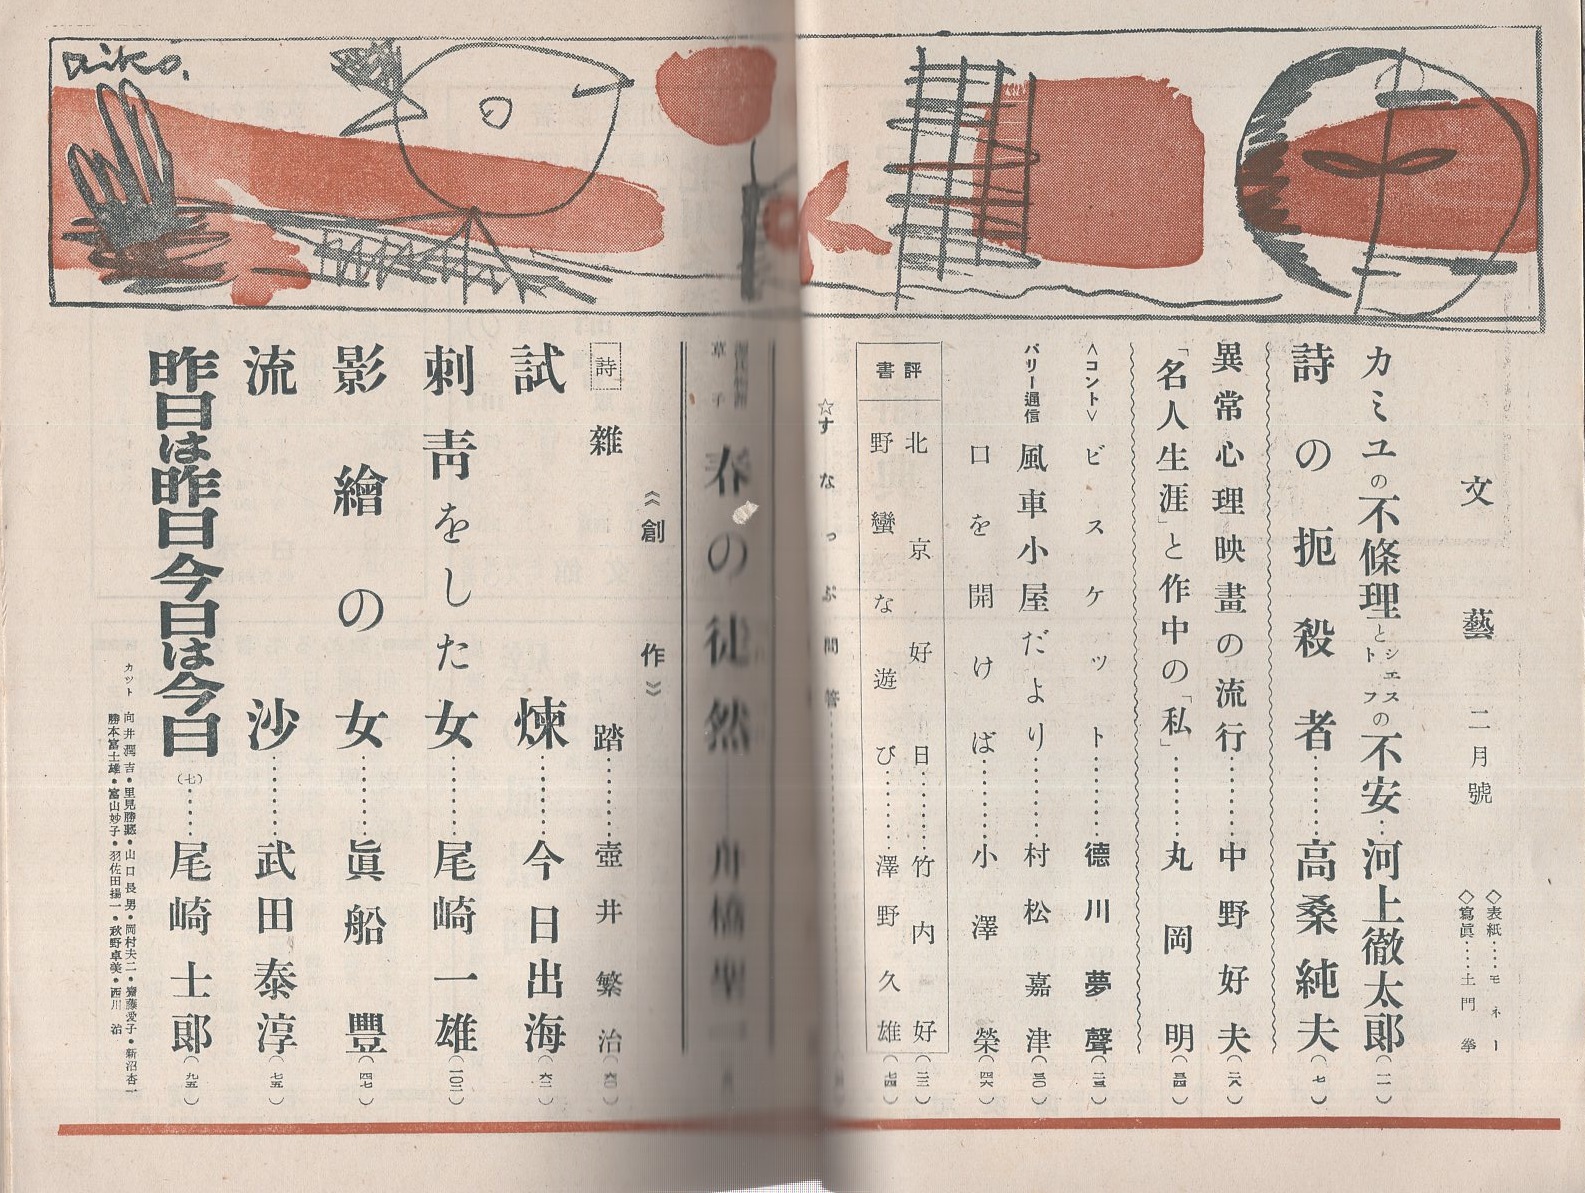 aiko.
文藝 二月號
◇表紙……モネー
◇寫眞……土門拳
カミユの不條理とシエストフの不安…河上徹太郎(一一)
詩の扼殺者………高桑純夫(七)
異常心理映畫の流行………中野好夫(二八)
「名人生涯」と作中の「私」………丸岡明(三四)
<コント>ビスケット………德川夢聲(二三)
パリー通信 風車小屋だより………村松嘉津(三〇)
口を開けば………小澤榮(四六)
書評
北京好日………竹内好(二二)
野蠻な遊び………澤野久雄(七四)
☆すなっぷ問答
草子
春の徒然――舟橋聖一
《創作》
詩 雜踏………壺井繁治(六〇)
試煉………今日出海(六二)
刺靑をした女………尾崎一雄(一〇二)
影繪の女………眞船豐(四七)
流沙………武田泰淳(七五)
昨日は昨日今日は今日(七)……尾崎士郞(九五)
カット 向井潤吉・里見勝藏・山口長男・岡村夫二・齋藤愛子・新沼杏一
勝本富士雄・富山妙子・羽佐田揚一・秋野卓美・西川治